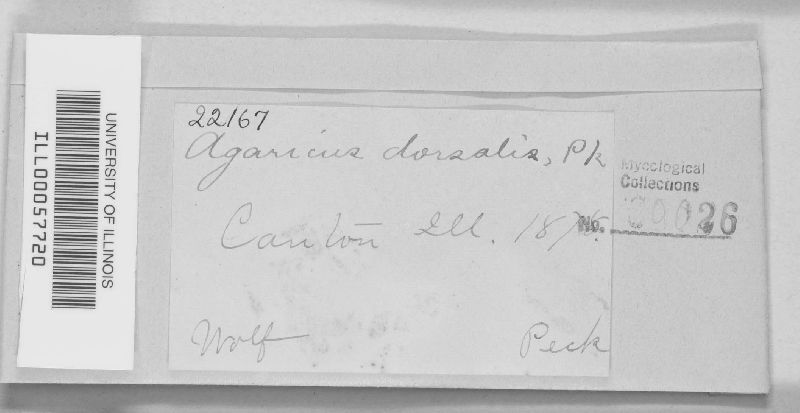 UNIVERSITY OF ILLINOIS
ILL00057720
22167
Agaricus dorsalis, Pk
Mycological
Collections
No.
Canton Ill.
Wolf
Peck